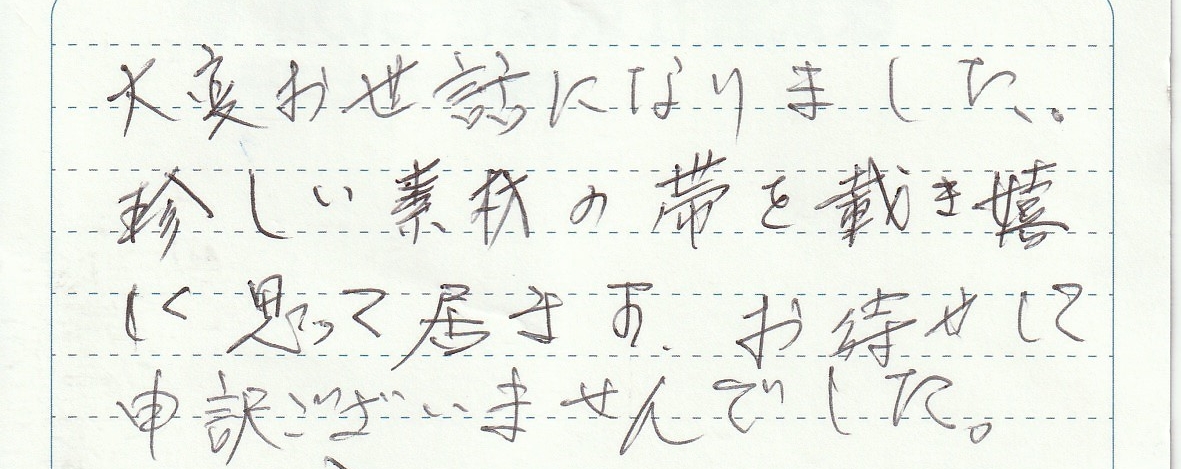 大変お世話になりました。
珍しい素材の帯を載き嬉
しく思って居ます。お待せして
申訳ございませんでした。